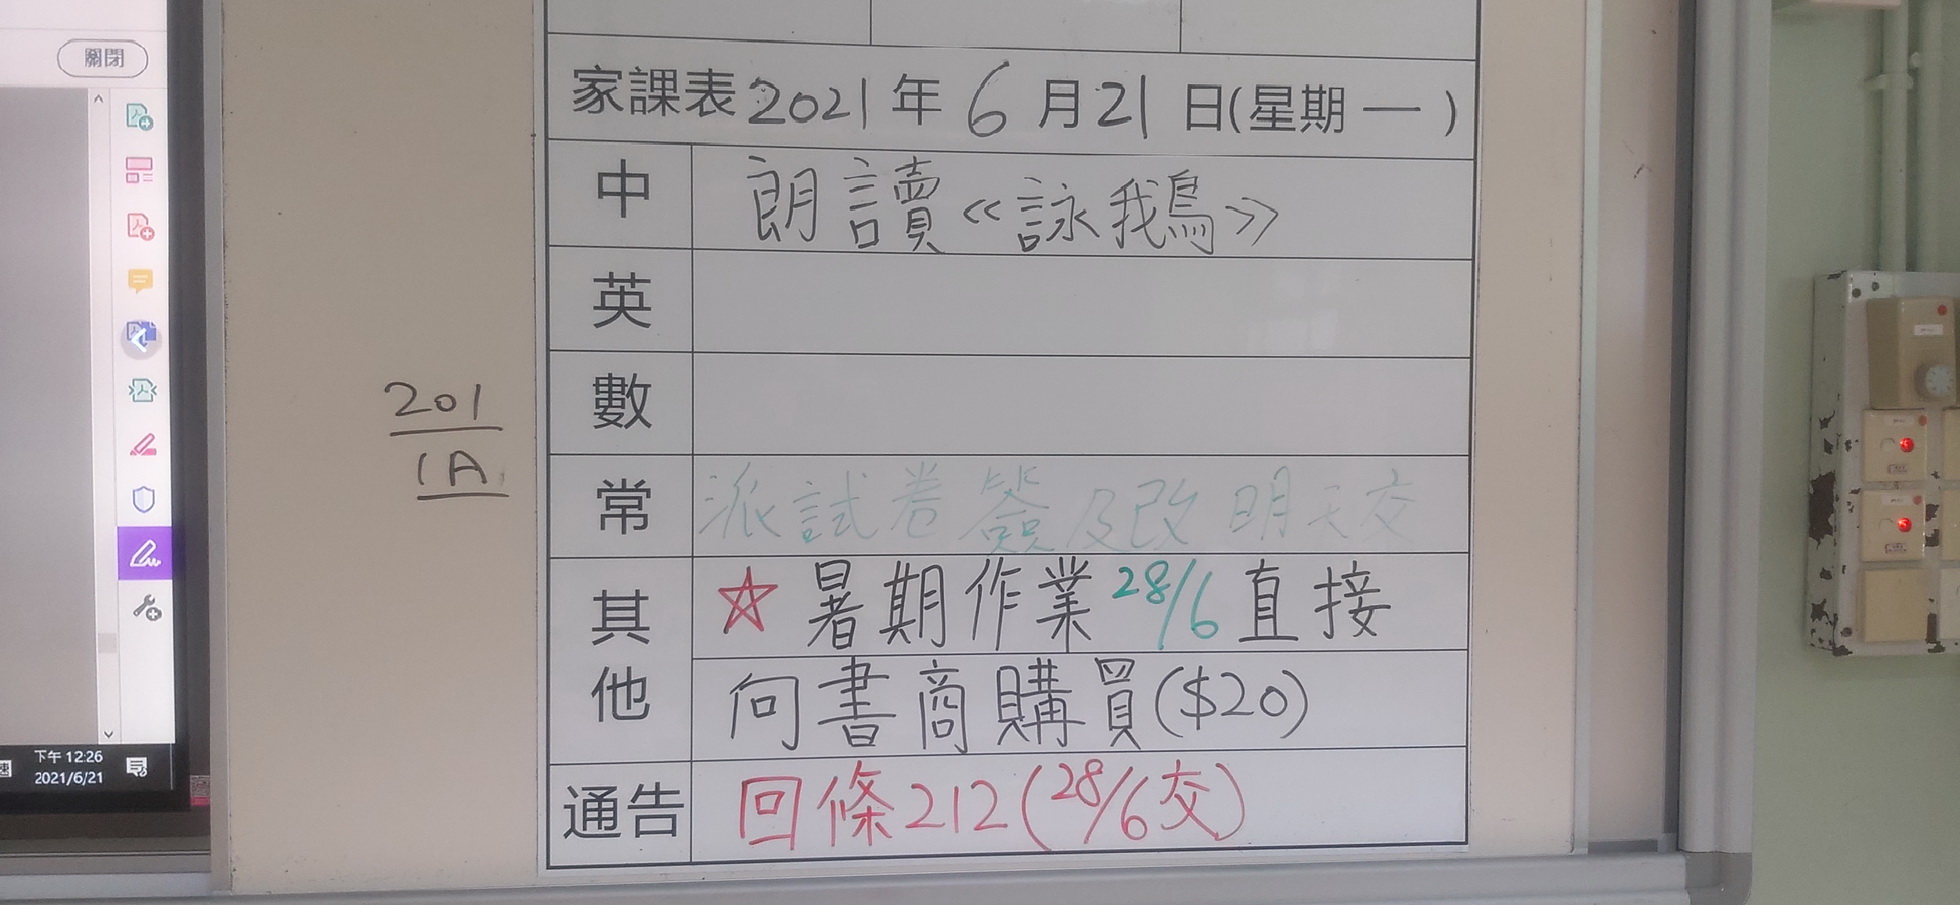 關閉
家課表 2021 年 6 月 21 日(星期 一 )
中 朗讀《詠鵝》
英
數
201
1A
常 派試卷簽及改 明天交
其他 ☆ 暑期作業 28/6 直接
向書商購買($20)
通告 回條212(28/6交)
下午 12:26
2021/6/21